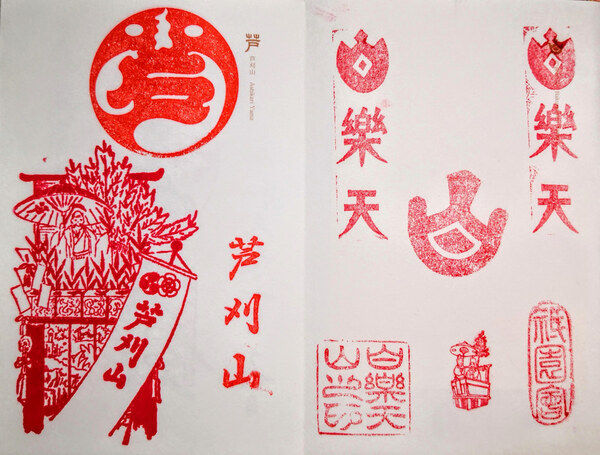 芦
芦
芦刈山 Ashikari Yama
芦刈山
芦刈山
白樂天
白樂天
白樂天
山之印
祇園會